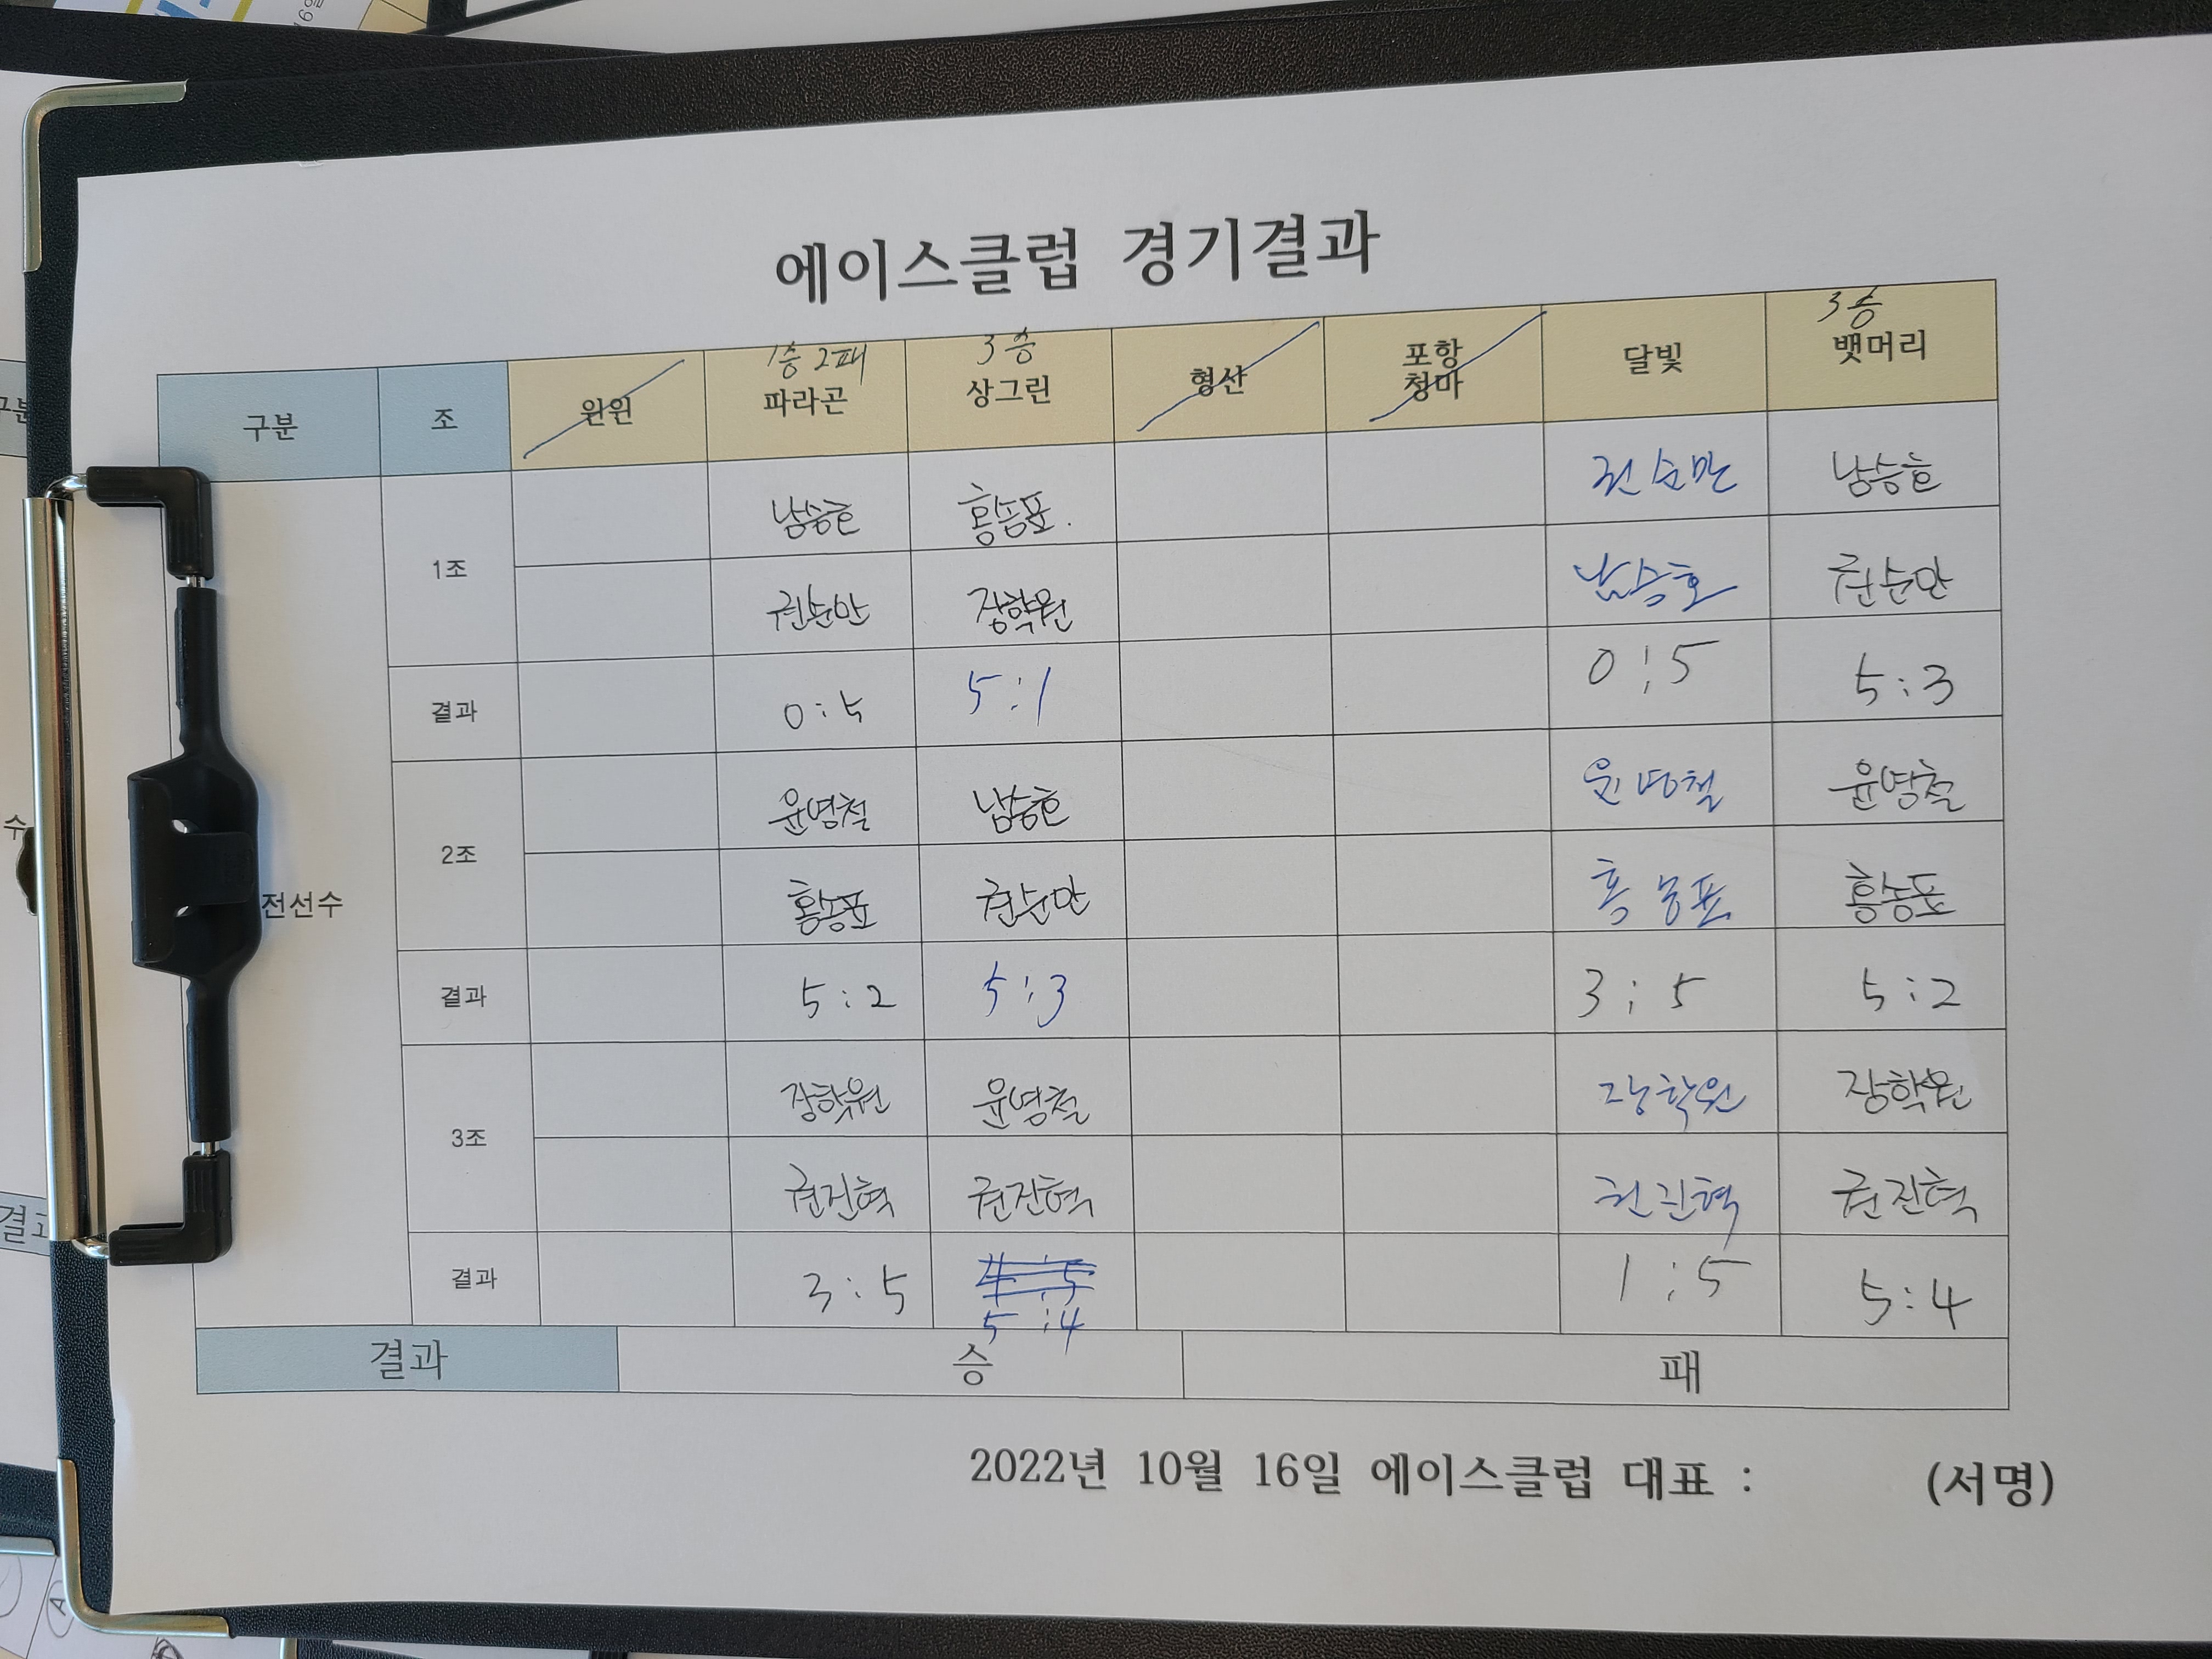 에이스클럽 경기결과
구분 조 윈윈 1승 2패 파라곤 3승 상그린 형산 포항 청마 달빛 3승 뱃머리
1조 남승호 홍승표. 권순만 남승호
권순만 장학원 남승호 권순만
결과 0:5 5:1 0:5 5:3
2조 윤영철 남승호 윤영철 윤영철
전선수 홍승표 권순만 홍승표 홍승표
결과 5:2 5:3 3:5 5:2
3조 장학원 윤영철 장학원 장학원
권진혁 권진혁 권진혁 권진혁
결과 3:5 5:4 1:5 5:4
결과 승 패
2022년 10월 16일 에이스클럽 대표 : (서명)